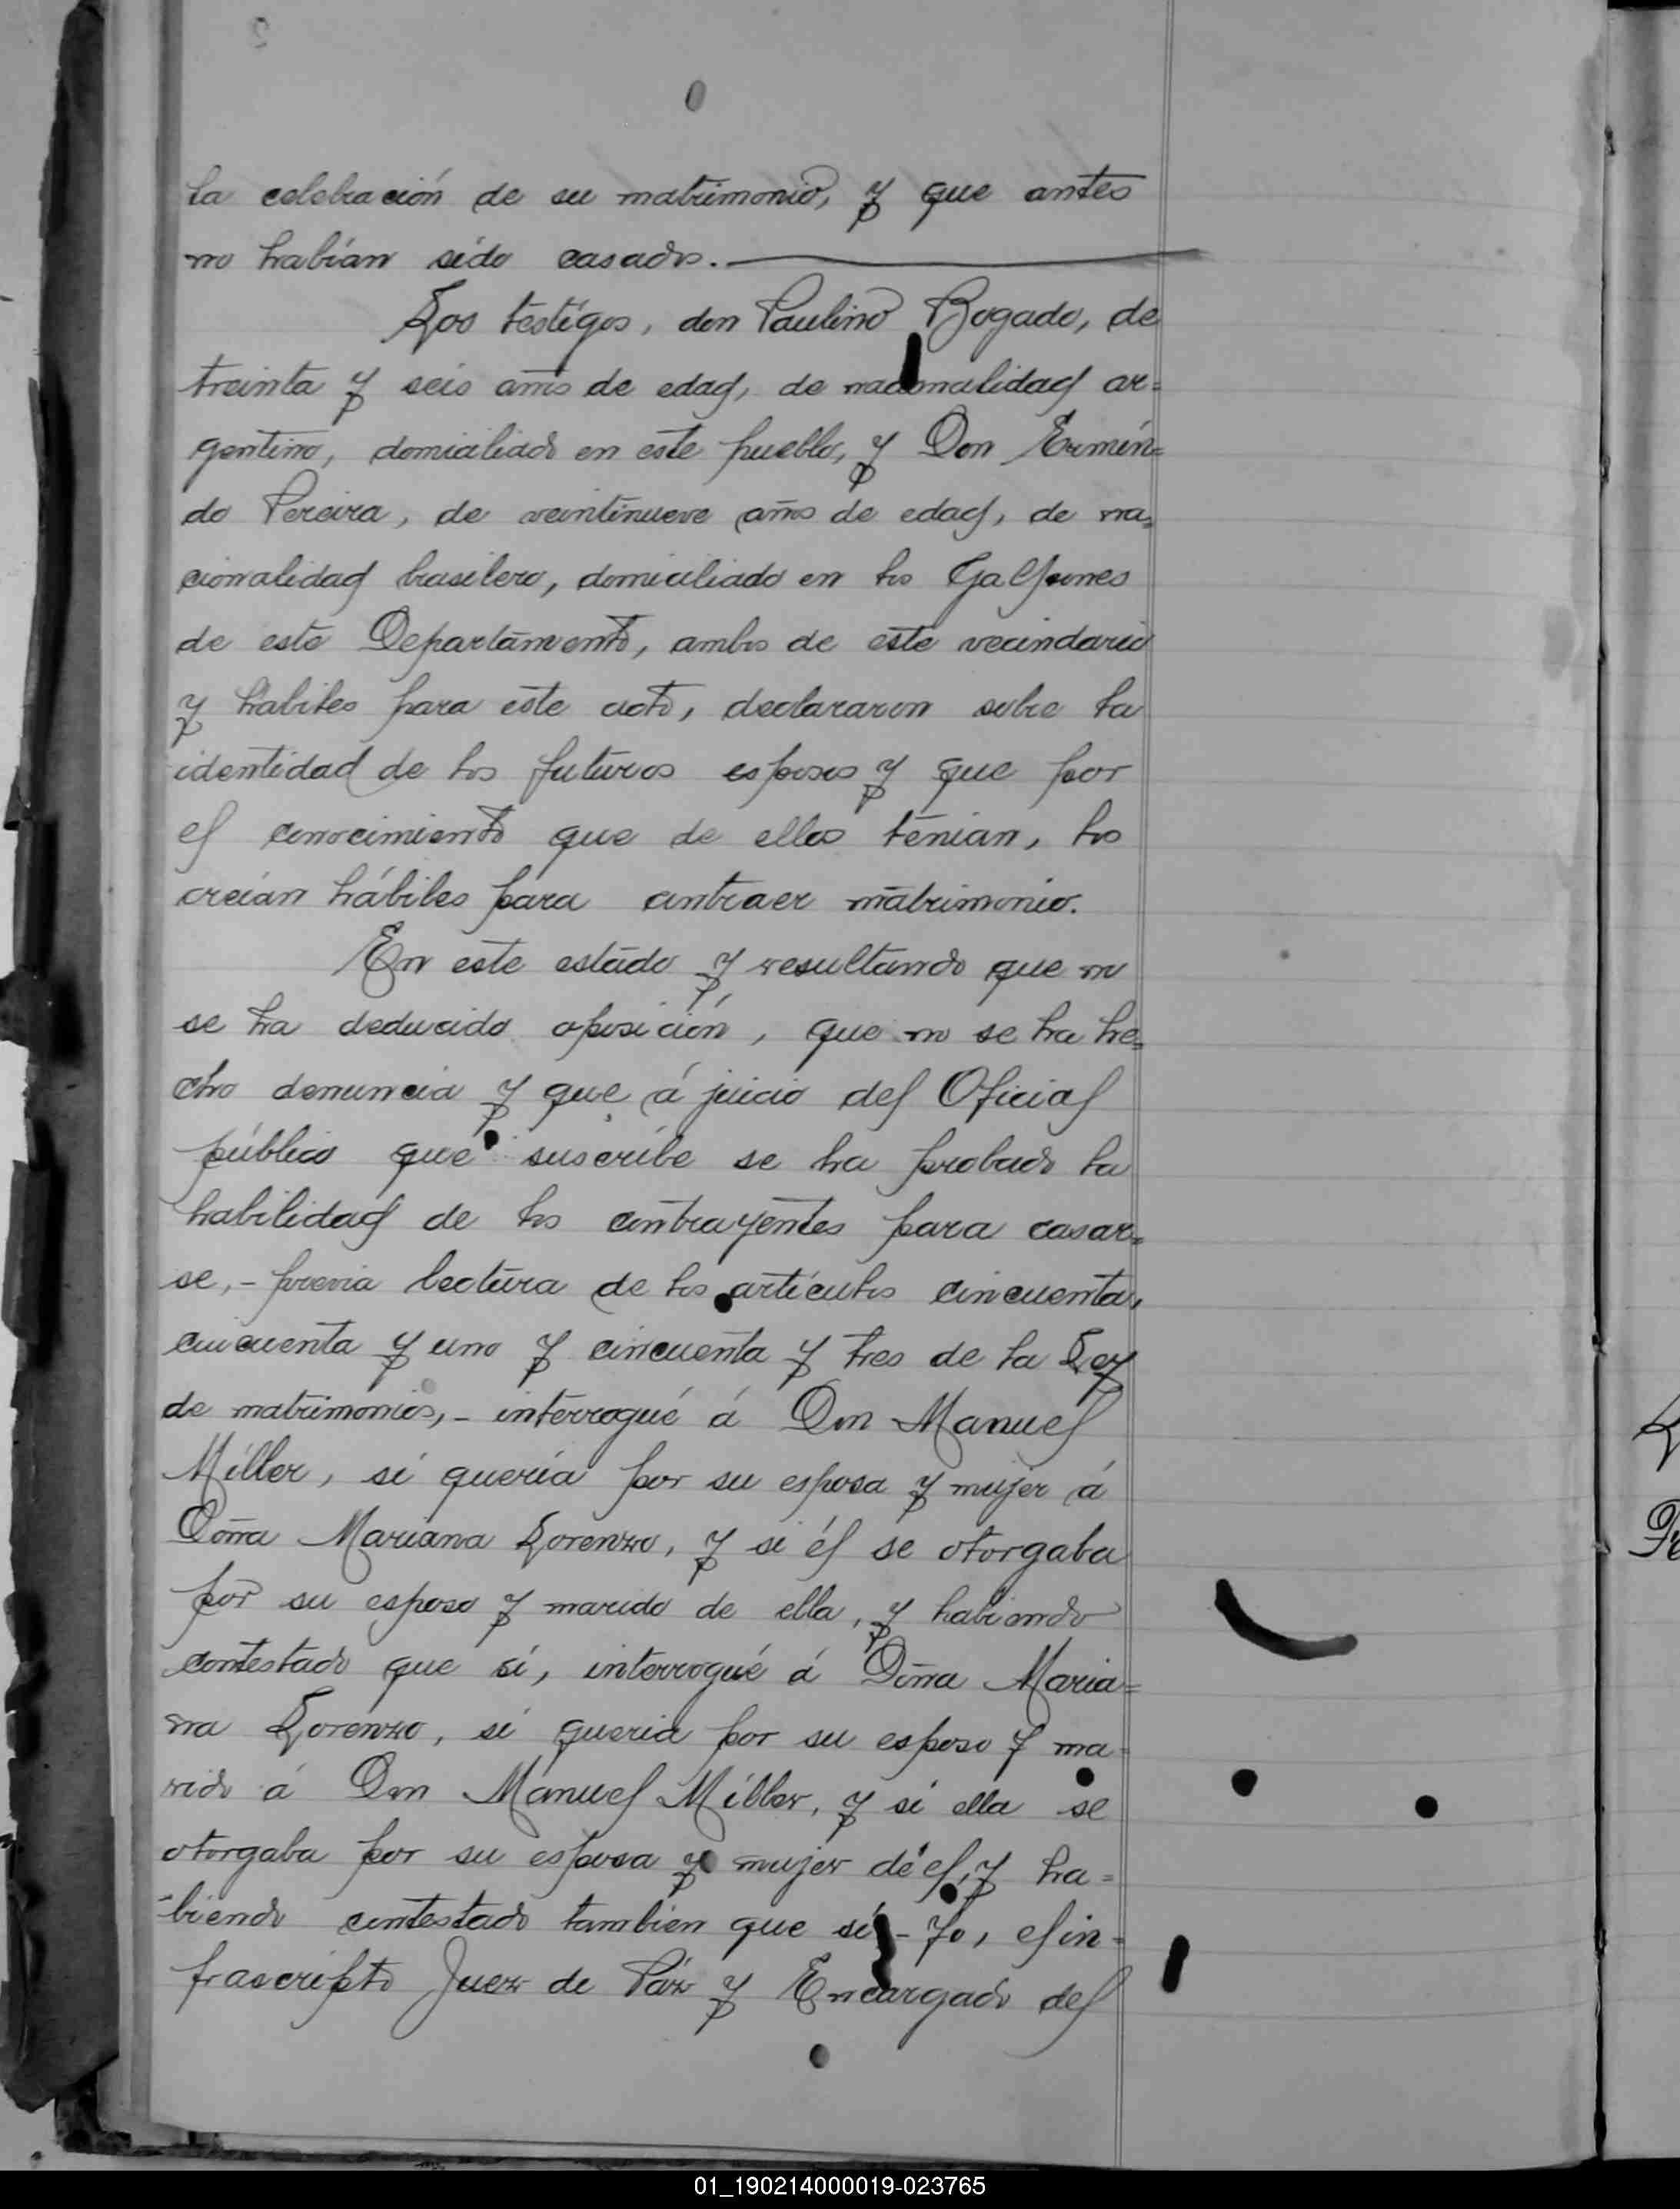 la celebración de su matrimonio, y que antes
no habían sido casados.
Los testigos, don Paulino Bogado, de
treinta y seis años de edad, de nacionalidad ar=
gentino, domiciliado en este pueblo, y Don Ermin=
do Pereira, de veintinueve años de edad, de na=
cionalidad brasilero, domiciliado en los Galpones
de este Departamento, ambos de este vecindario
y habiles para este acto, declararon sobre la
identidad de los futuros esposos y que por
el conocimiento que de ellos tenian, los
creían hábiles para contraer matrimonio.
En este estado y resultando que no
se ha deducido oposición, que no se ha he=
cho denuncia y que á juicio del Oficial
público que suscribe se ha probado la
habilidad de los contrayentes para casar=
se,- previa lectura de los artículos cincuenta,
cincuenta y uno y cincuenta y tres de la Ley
de matrimonios,- interrogué á Don Manuel
Miller, si quería por su esposa y mujer á
Doña Mariana Lorenzo, y si él se otorgaba
por su esposo y marido de ella, y habiendo
contestado que sí, interrogué á Doña Maria=
na Lorenzo, si queria por su esposo y ma=
rido á Don Manuel Miller, y si ella se
otorgaba por su esposa y mujer de él, y ha=
biendo contestado tambien que sí,- Yo, el in=
frascripto Juez de Páz y Encargado del
01_190214000019-023765